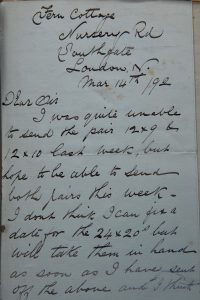 Fern Cottage
Nursery Rd
Southgate
London, N.
Mar 14th / 92
Dear Sir
I was quite unable
to send the pair 12x9 &
12x10 last week, but
hope to be able to send
both pairs this week -
I dont think I can fix a
date for the 24x20s but
will take them in hand
as soon as I have sent
off the above and I think